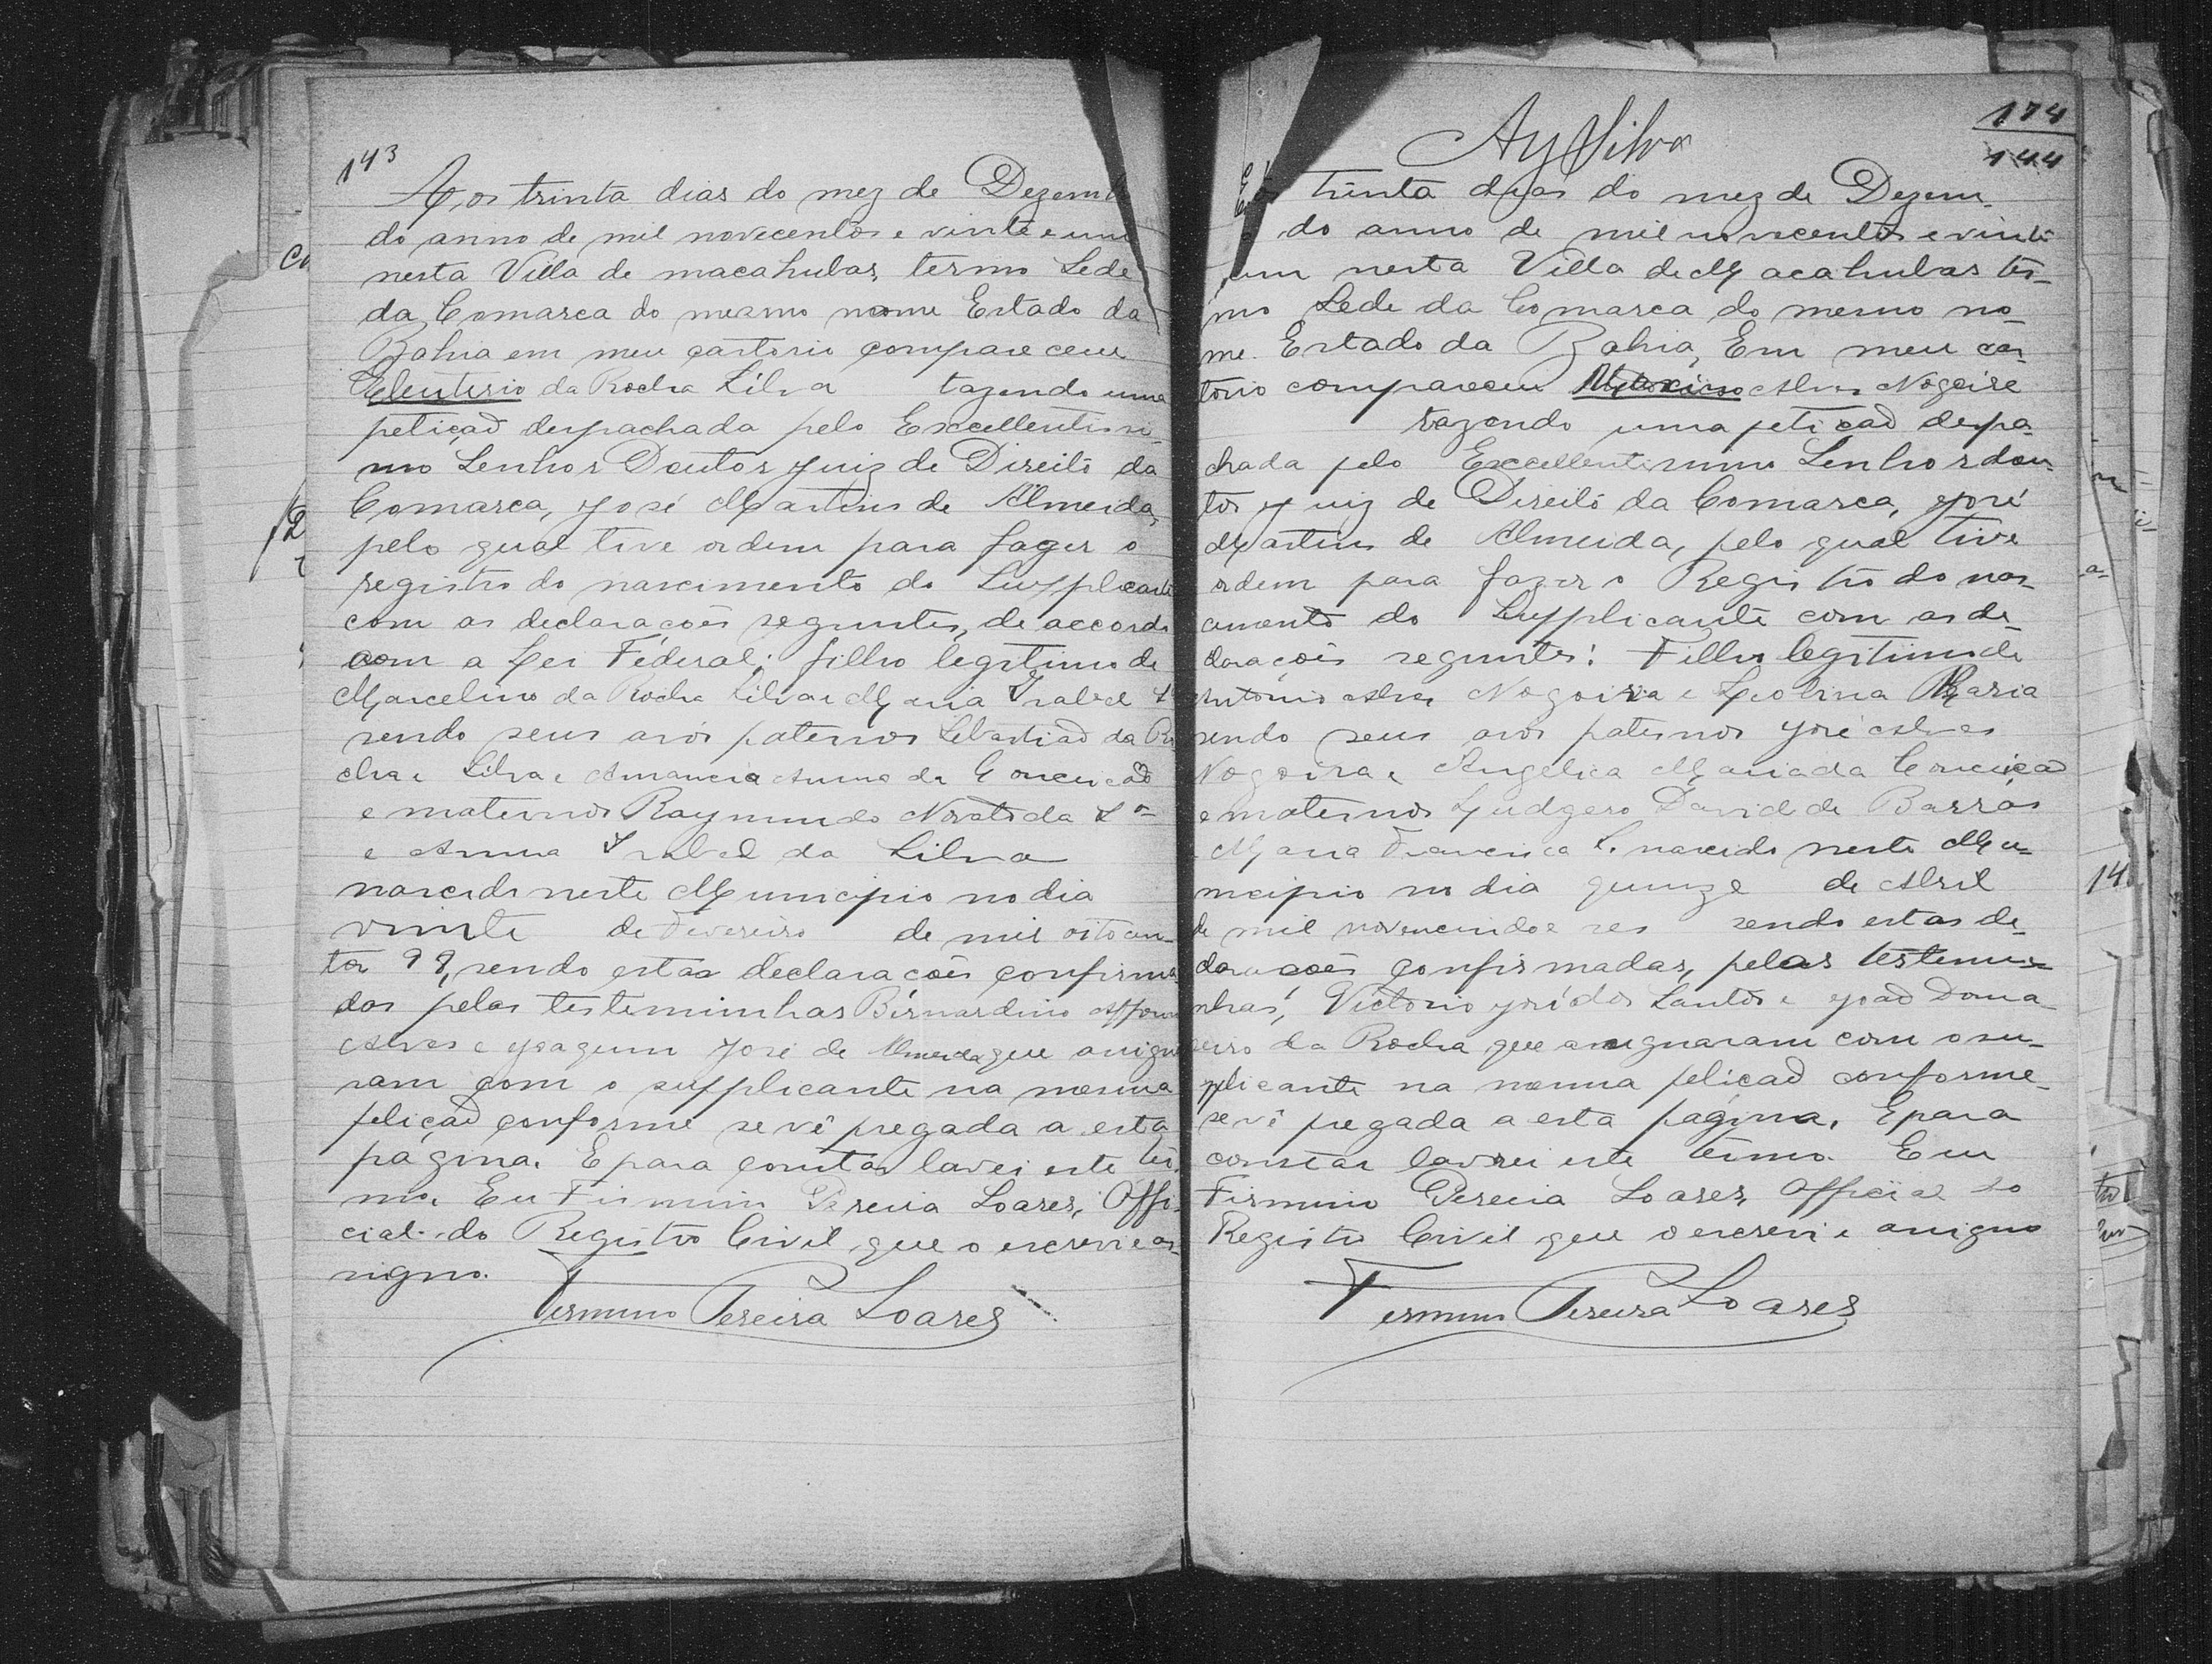 143
Aos trinta dias do mez de Dezemb
do anno de mil novecentos e vinte e um
nesta Villa de macahubas, termo Sede
da Comarca do mesmo nome Estado da
Bahia em meu cartorio compareceu
Eleuterio da Rocha Silva tazendo uma
petição despachada pelo Excellentissi-
mo Senhor Doutor Juiz de Direito da
Comarca, José Martins de Almeida,
pelo qual tive ordem para fazer o
registro do nascimento do Supplicante
com as declarações seguntes, de accordo
com a Lei Féderal: filho legitimo de
Marcelino da Rocha Silva e Maria Isabel
sendo seus avós paternos Sebastião da Ro
cha e Silva e Amancia Anna da Conceicão
e maternos Raymundo Novato da Sª
e Anna Isabel da Silva
nascido neste Municipio no dia
vinte de Fevereiro de mil oitocen-
tos 99, sendo estas declarações confirma
das pelas testeminhas Bernardino Affonso
Alves e Joaquim José de Almeida que assigna
ram com o supplicante na mesma
petiçaõ conforme se vê pregada a esta
pagina. E para constar lavrei este ter
mo. Eu Firmino Pereira Soares, Offi-
cial do Registro Civil que o escrevi e as-
signo.
Firmino Pereira Soares
Ay Silva
174
144
trinta dias do mez de Dezem-
do anno de mil novecentos e vinte
um nesta Villa de Macahubas ter-
mo Sede da Comarca do mesmo no-
me Estado da Bahia, Em meu car-
torio compareceu Alves Nogoira
tazendo uma petiçaõ despa-
chada pelo Excellentissimo Senhor dou-
tor Juiz de Direito da Comarca, José
Martins de Almeida, pelo qual tive
ordem para fazer o Registro do nas-
cimento do Supplicante com as de-
clarações seguntes: Filho legitimo de
Antonio Alves Nogoira e Leolina Maria
sendo seus avos paternos José Alves
Nogoira e Angelica Maria da Conceiçaõ
e maternos Ludgero David de Barros
Maria Francisca S. nascido neste Mu-
nicipio no dia quinze de Abril
de mil novencendos e res sendo estas de-
clarações confirmadas, pelas testemu-
nhas, Victorio José dos Santos e Joaõ Dona
da Rocha que assignaram com o su-
pplicante na mesma petiçaõ conforme-
se vê pregada a esta pagina. E para
constar lavrei este termo. Eu
Firmino Pereira Soares, Official do
Registro Civil que o escrevi e assigno
Firmino Pereira Soares